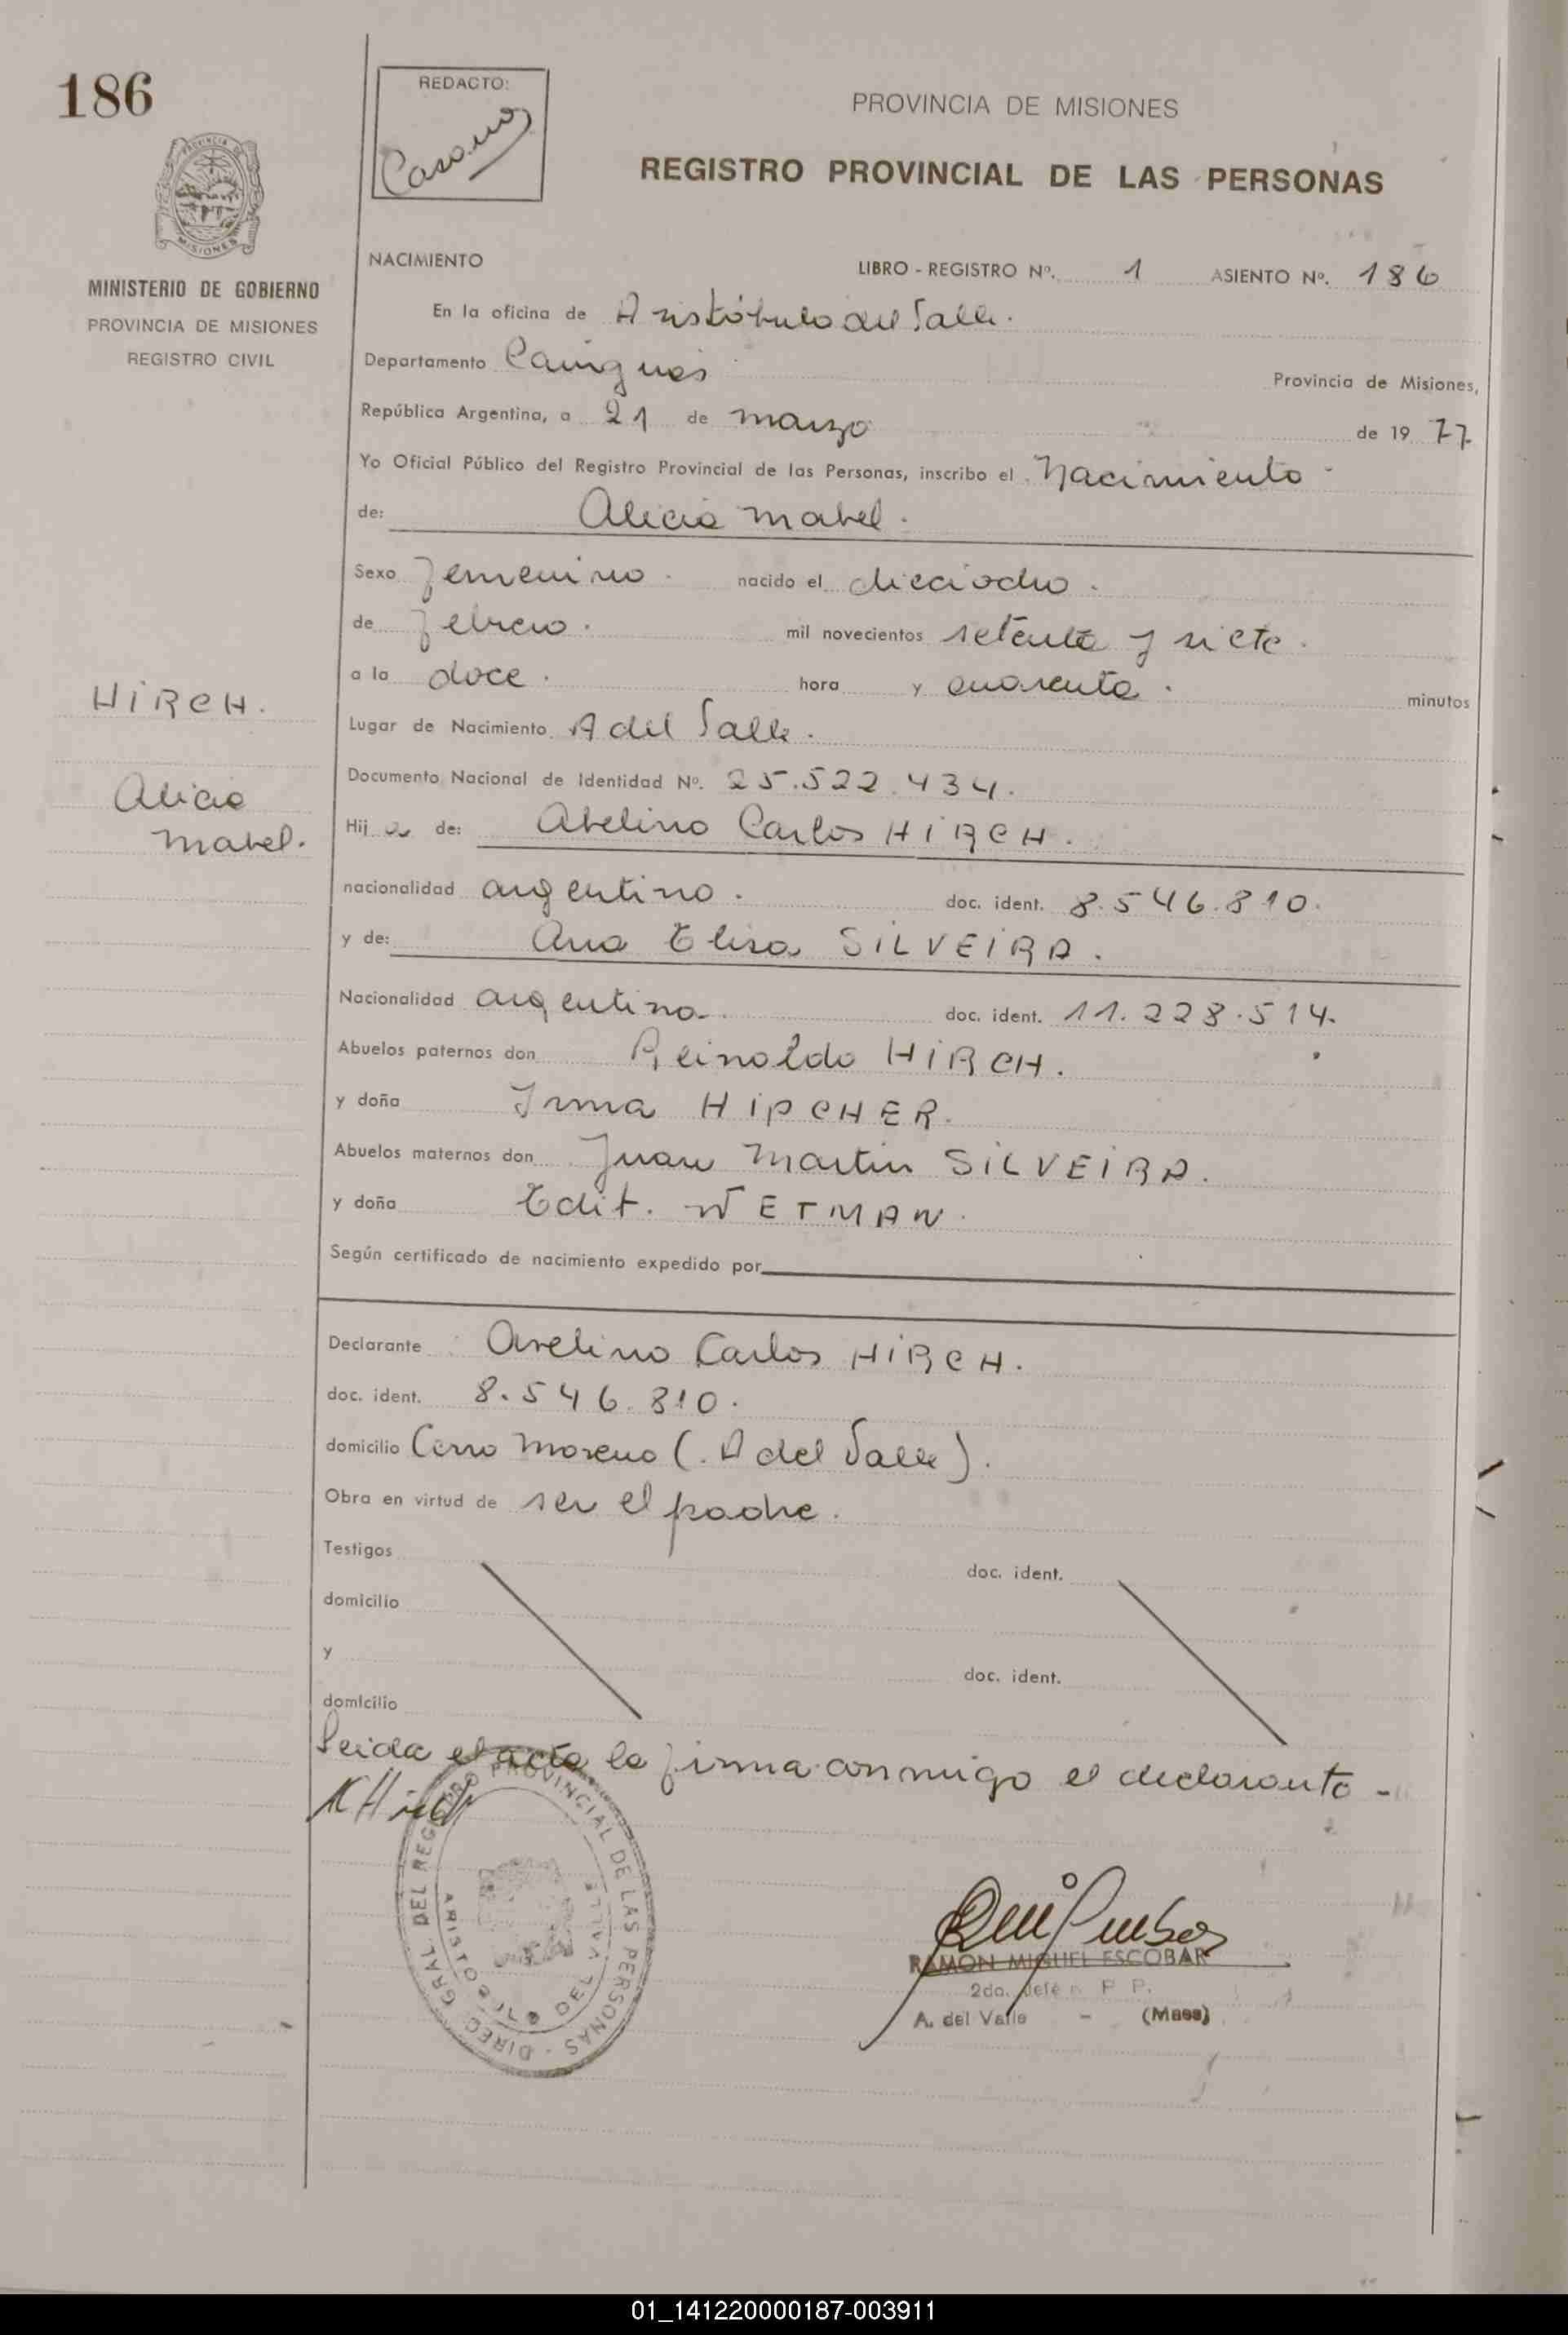 186
REDACTO:
PROVINCIA DE MISIONES
REGISTRO PROVINCIAL DE LAS PERSONAS
PROVINCIA DE
MISIONES
MINISTERIO DE GOBIERNO
PROVINCIA DE MISIONES
REGISTRO CIVIL
NACIMIENTO
LIBRO - REGISTRO Nº. 1 ASIENTO Nº. 186
En la oficina de Aristóbulo del Valle.
Departamento Cainguás Provincia de Misiones,
República Argentina, a 21 de marzo de 1977.
Yo Oficial Público del Registro Provincial de las Personas, inscribo el Nacimiento -
de: Alicia Mabel.
Sexo femenino. nacido el dieciocho.
de febrero. mil novecientos setenta y siete.
a la doce. hora y cuarenta. minutos
HiRCH.
Lugar de Nacimiento A del Valle.
Documento Nacional de Identidad Nº. 25.522.434.
Alicia
Mabel.
Hij a de: Avelino Carlos HiRCH.
nacionalidad argentino. doc. ident. 8.546.810.
y de: Ana Elisa SiLVEiRA.
Nacionalidad argentina. doc. ident. 11.228.514.
Abuelos paternos don Reinoldo HiRCH.
y doña Irma HiPCHER.
Abuelos maternos don Juan Martin SiLVEiRA.
y doña Edit. WETMAN.
Según certificado de nacimiento expedido por
Declarante Avelino Carlos HiRCH.
doc. ident. 8.546.810.
domicilio Cerro Moreno (A del Valle).
Obra en virtud de ser el padre.
Testigos doc. ident.
domicilio
y doc. ident.
domicilio
Leida el acta la firma conmigo el declarante -
DIREC. GRAL. DEL REGISTRO PROVINCIAL DE LAS PERSONAS -
ARISTOBULO DEL VALLE
RAMON MIGUEL ESCOBAR
2do. Jefe R. P. P.
A. del Valle - (Mnes)
01_141220000187-003911